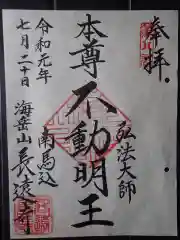 奉拝
弘法大師
本尊
不動明王
南馬込
令和元年
七月二十日
海岳山
長遠寺